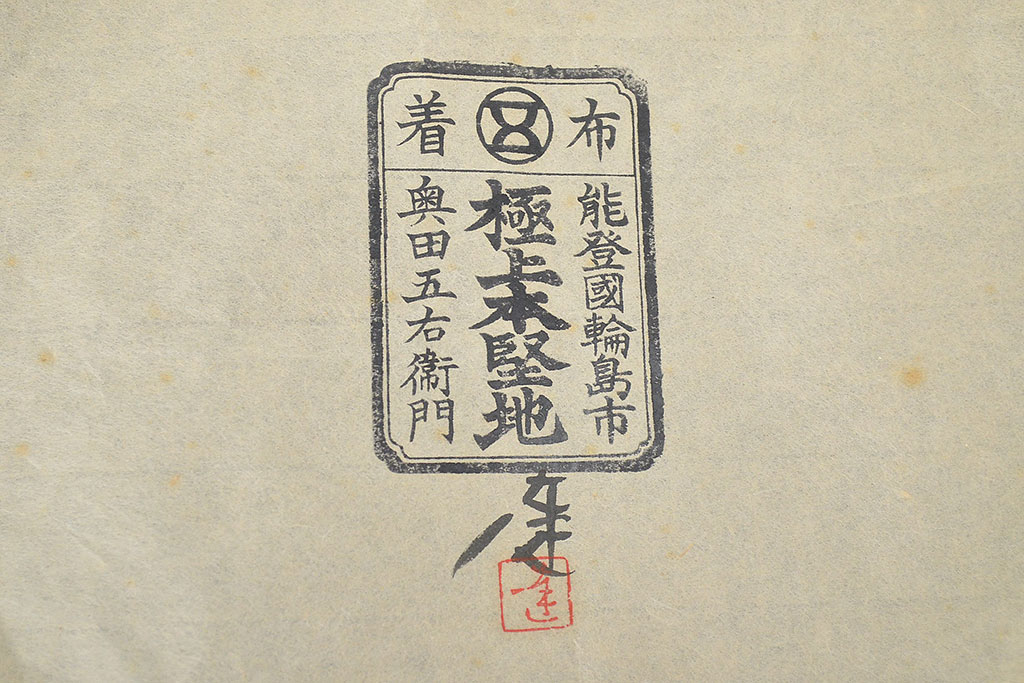 布着
能登國輪島市
極上本堅地
奥田五右衞門